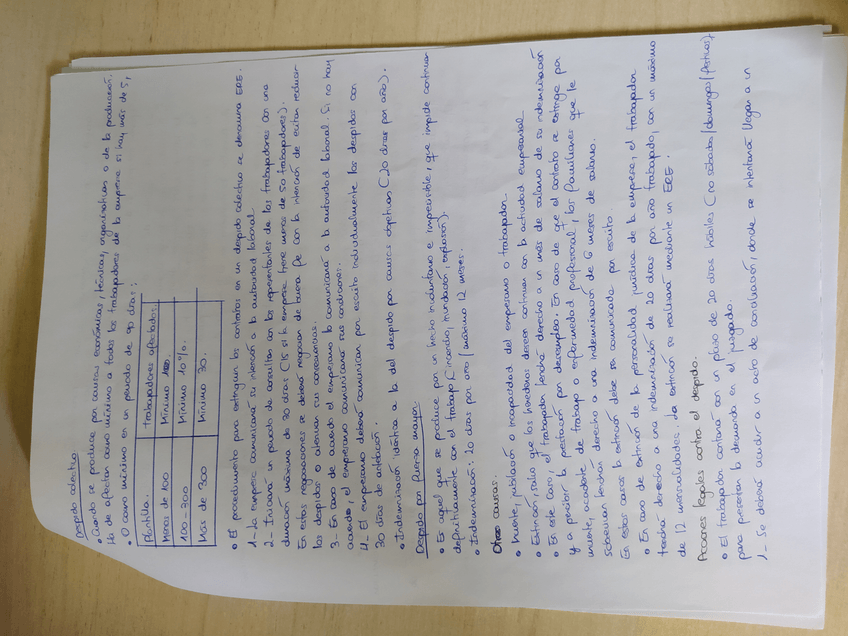 Despido colectivo
• Cuando se produce por causas económicas, técnicas, organizativas o de la producción.
Ha de afectar como mínimo a todos los trabajadores de la empresa si hay más de 5,
• O como mínimo en un periodo de 90 días:
Plantilla. trabajadores afectados.
Menos de 100 Mínimo
100-300 Mínimo 10%.
Más de 300 Mínimo 30.
• El procedimiento para extinguir los contratos en un despido colectivo se denomina ERE.
1- La empresa comunicará su intención a la autoridad laboral.
2- Iniciará un periodo de consultas con los representantes de los trabajadores con una
duración máxima de 30 días (15 si la empresa tiene menos de 50 trabajadores).
En estas negociaciones se deberá negociar de buena fe con la intención de evitar reducir
los despidos o atenuar sus consecuencias.
3- En caso de acuerdo el empresario lo comunicará a la autoridad laboral. Si no hay
acuerdo, el empresario comunicará sus condiciones.
4- El empresario deberá comunicar por escrito individualmente los despidos con
30 días de antelación.
• Indemnización idéntica a la del despido por causas objetivas (20 días por año).
Despido por fuerza mayor:
• Es aquel que se produce por un hecho involuntario e imprevisible, que impide continuar
definitivamente con el trabajo (incendio, inundación, explosión).
• Indemnización: 20 días por año (máximo 12 meses.
Otras causas.
• Muerte, jubilación o incapacidad del empresario o trabajador.
• Extinción, salvo que los herederos deseen continuar con la actividad empresarial.
• En este caso, el trabajador tendrá derecho a un mes de salario de su indemnización
y a percibir la prestación por desempleo. En caso de que el contrato se extinga por
muerte, accidente de trabajo o enfermedad profesional, los familiares que le
sobrevivan tendrán derecho a una indemnización de 6 meses de salario.
En estos casos la extinción debe ser comunicada por escrito.
• En caso de extinción de la personalidad jurídica de la empresa, el trabajador
tendrá derecho a una indemnización de 20 días por año trabajado, con un máximo
de 12 mensualidades. La extinción se realizará mediante un ERE.
Acciones legales contra el despido.
• El trabajador contará con un plazo de 20 días hábiles (no sábados/domingos/festivos)
para presentar la demanda en el juzgado.
1- Se deberá acudir a un acto de conciliación, donde se intentará llegar a un